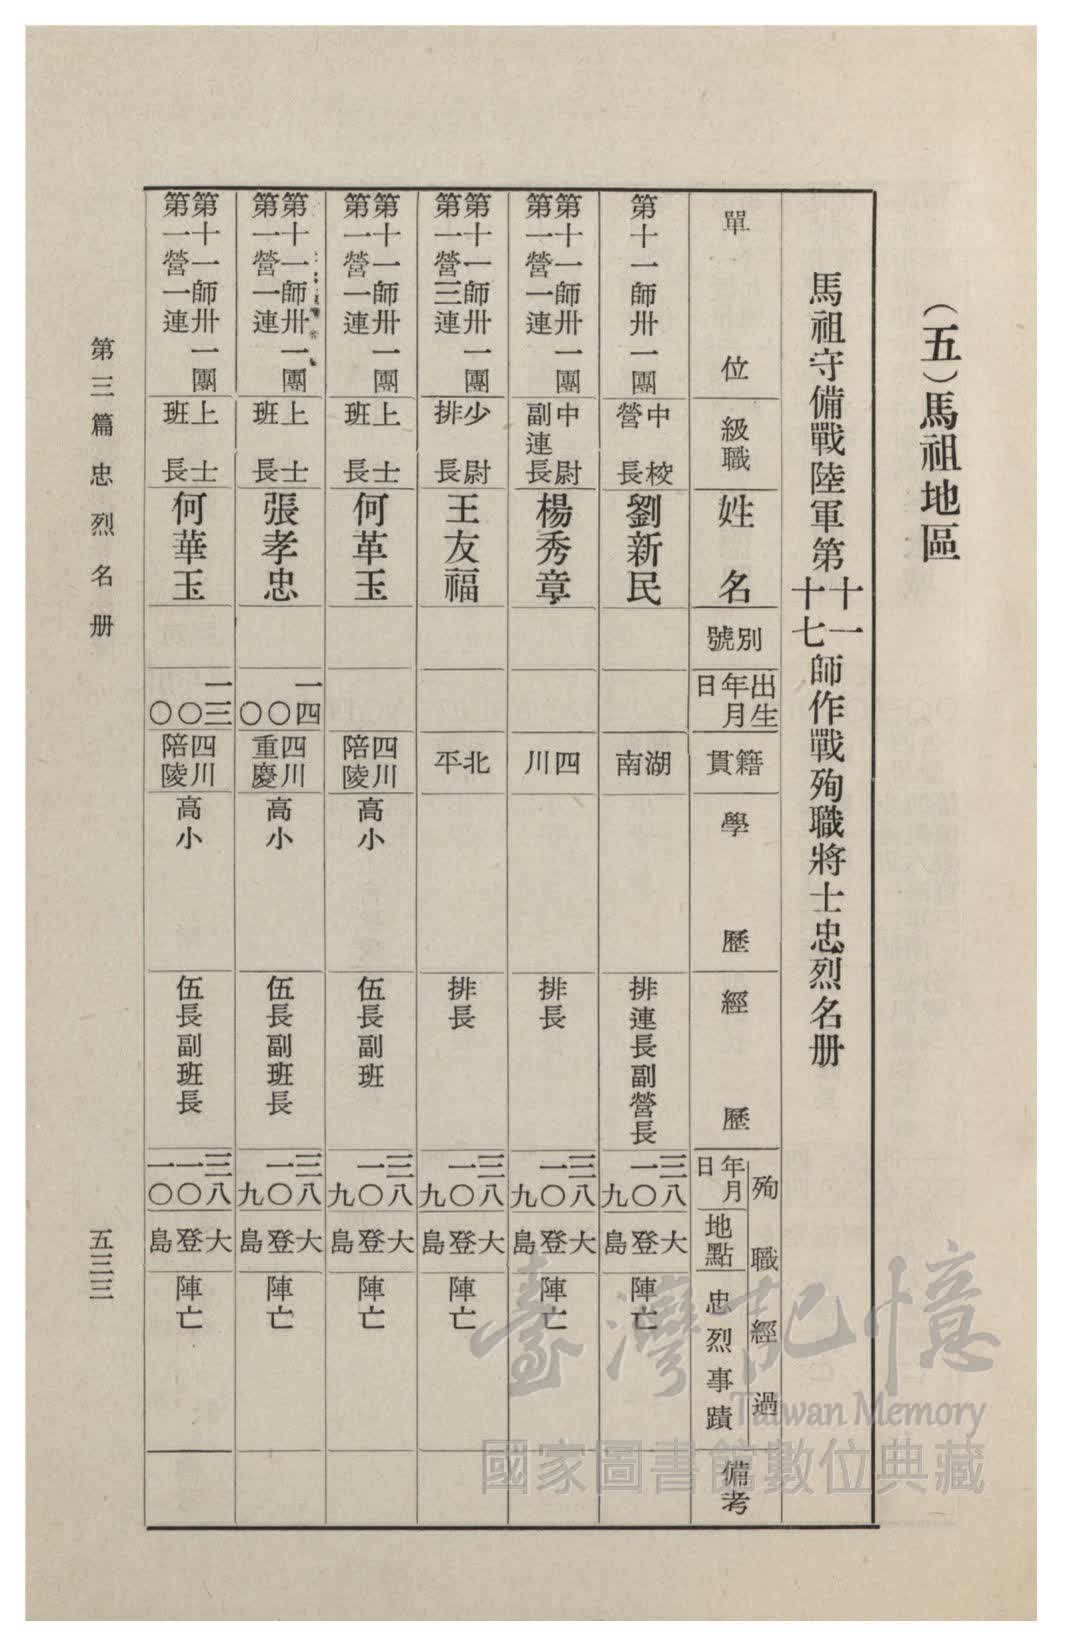 （五）馬祖地區
馬祖守備戰陸軍第十一十七師作戰殉職將士忠烈名册
單位
級職
姓名
別號
出生年月日
籍貫
學歷
經歷
殉職經過
年月日
地點
忠烈事蹟
備考
第十一師卅一團
中校
營長
劉新民
湖南
排連長副營長
三八
一〇
九
大登島
陣亡
第十一師卅一團
第一營一連
中尉
副連長
楊秀章
四川
排長
三八
一〇
九
大登島
陣亡
第十一師卅一團
第一營三連
少尉
排長
王友福
北平
排長
三八
一〇
九
大登島
陣亡
第十一師卅一團
第一營一連
上士
班長
何革玉
四川
陪陵
高小
伍長副班
三八
一〇
九
大登島
陣亡
第十一師卅一團
第一營一連
上士
班長
張孝忠
一四
〇
〇
四川
重慶
高小
伍長副班長
三八
一〇
九
大登島
陣亡
第十一師卅一團
第一營一連
上士
班長
何華玉
一三
〇
〇
四川
陪陵
高小
伍長副班長
三八
一〇
一〇
大登島
陣亡
第三篇忠烈名册
五三三
臺灣記憶
Taiwan Memory
國家圖書館數位典藏